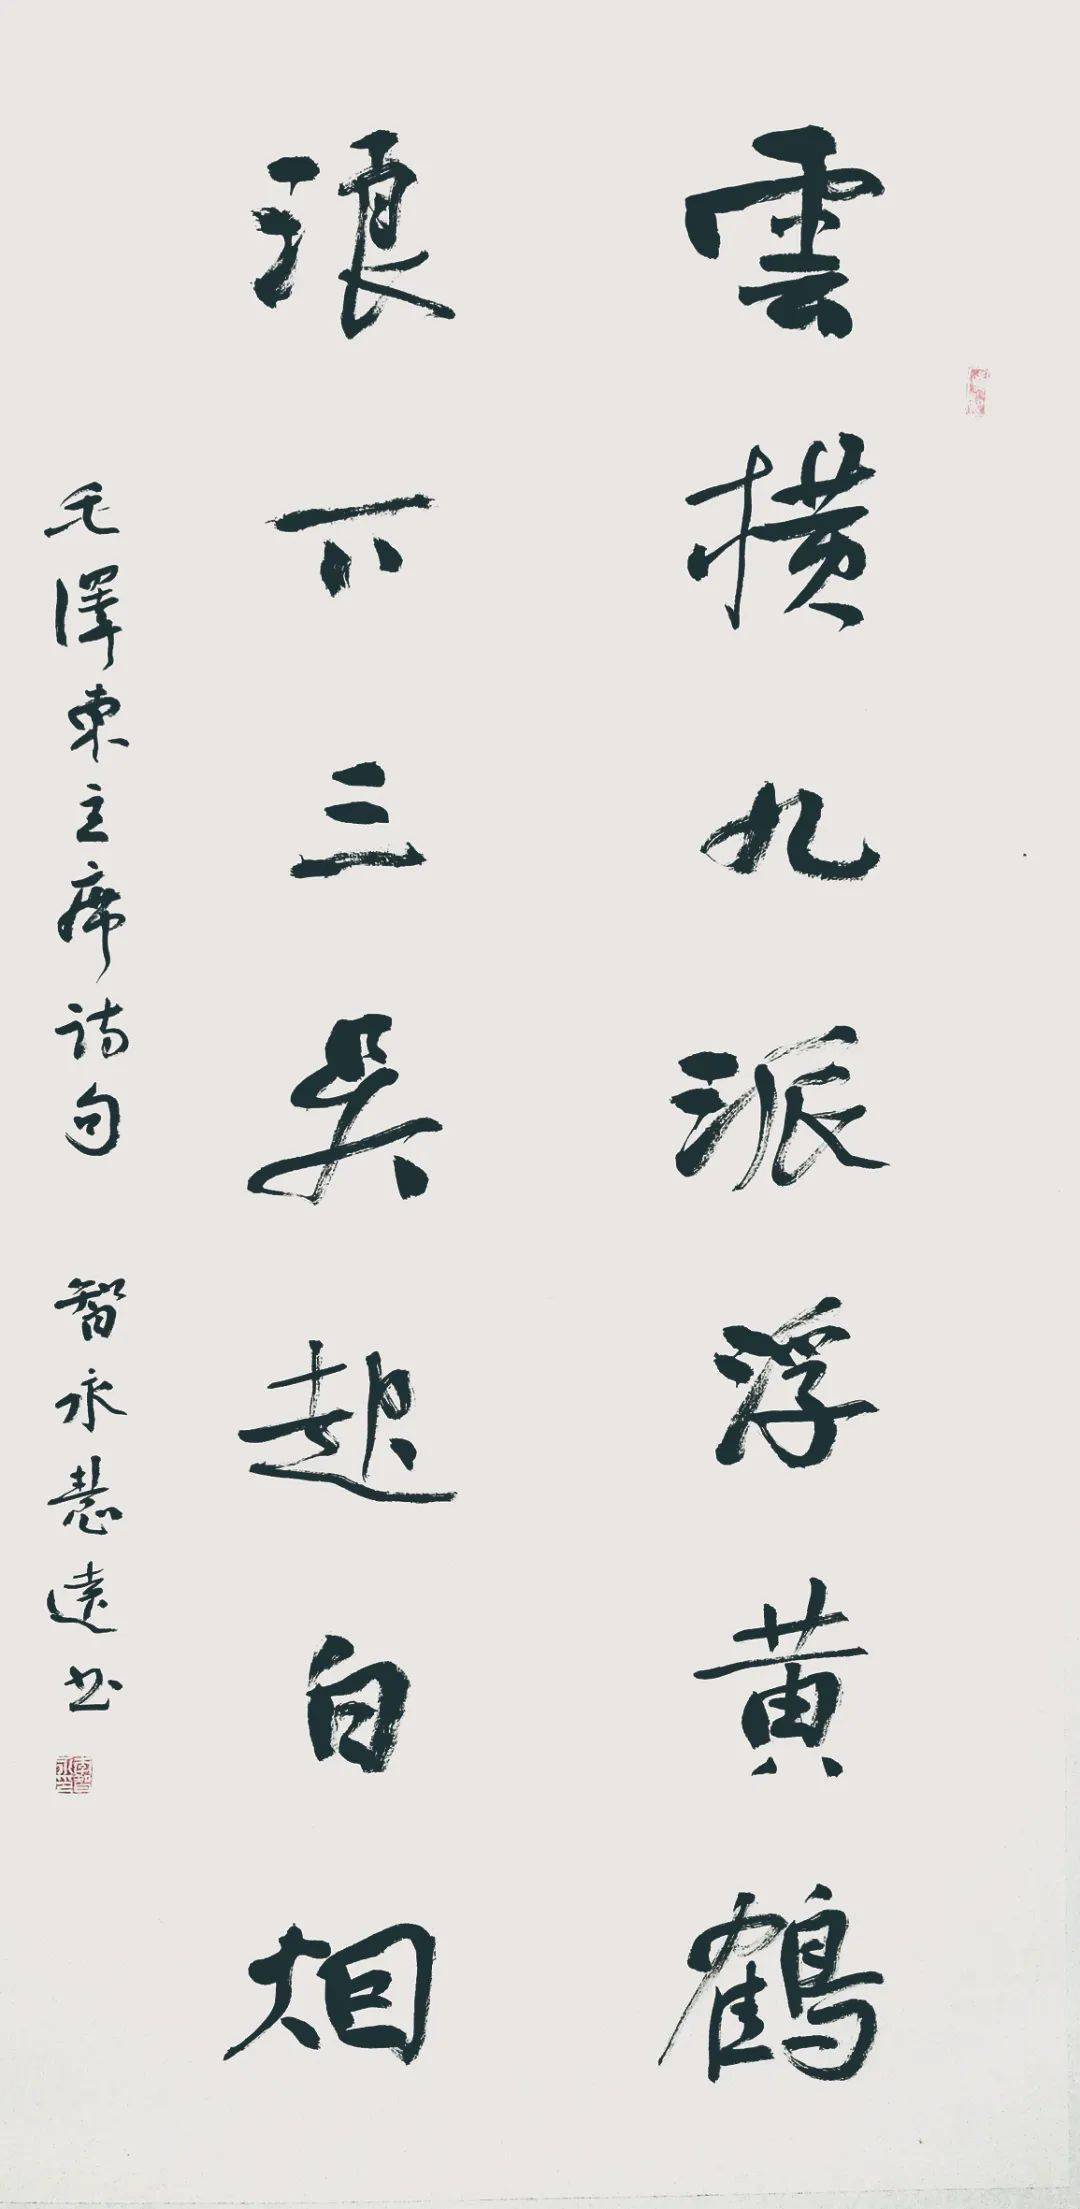 雲横九派浮黄鶴
浪下三吴起白烟
毛澤東主席詩句 智永慧遠书